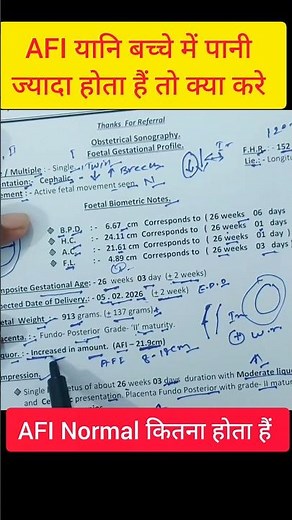 AFI यानि बच्चे में पानी
ज्यादा होता हैं तो क्या करे
Thanks For Referral
Obstetrical Sonography,
Foetal Gestational Profile.
/ Multiple :- Single
F.H.R. :- 152
entation:- Cephalic - Breech
Lie.:- Longitu
ement :- Active fetal movement seen. N
Foetal Biometric Notes.
B.P.D. :- 6.67 cm Corresponds to ( 26 weeks 06 days
H.C. :- 24.11 cm Corresponds to ( 26 weeks 01 days
A.C. :- 21.61 cm Corresponds to ( 26 weeks 01 days
F.L. :- 4.89 cm Corresponds to ( 26 weeks 03 days )
mposite Gestational Age:- 26 weeks 03 day (± 2 weeks)
pected Date of Delivery:- 05 . 02. 2026 (± 2 weeks) E.D.D
etal Weight:- 913 grams. (± 137 grams)+
acenta. :- Fundo- Posterior Grade- 'II' maturity.
quor. :- Increased in amount. (AFI – 21.9cm)
AFI 8-18cm
mpression.
Single fetus of about 26 weeks 03 days duration with Moderate liquo
and Ce presentation. Placenta Fundo Posterior with grade- II matur
AFI Normal कितना होता हैं